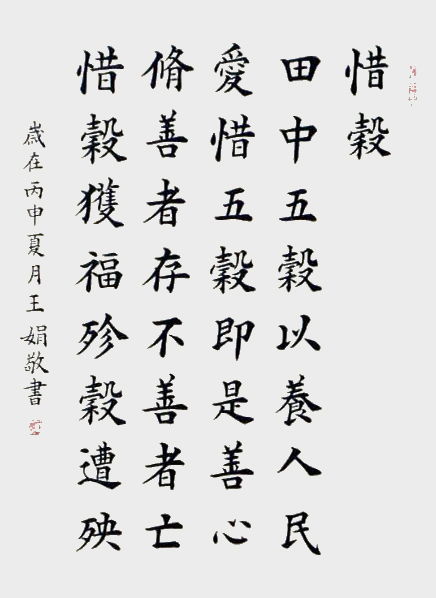 惜穀
田中五穀以養人民
愛惜五穀即是善心
脩善者存不善者亡
惜穀獲福殄穀遭殃
歲在丙申夏月王娟敬書